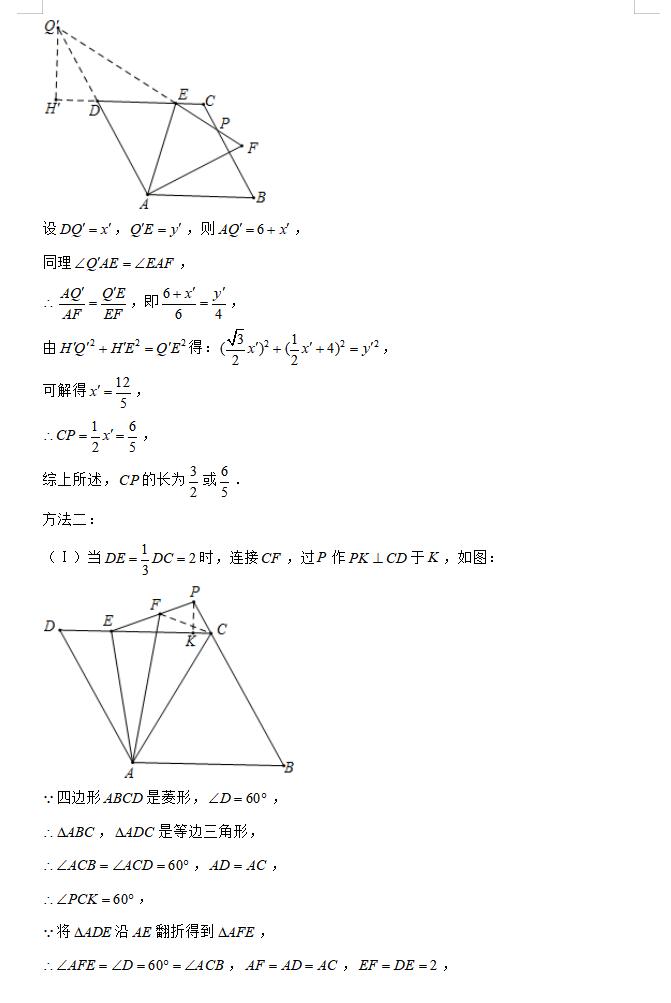 Q′
H′ D E C
P
F
A B
设 DQ′ = x′，Q′E = y′，则 AQ′ = 6 + x′，
同理 ∠Q′AE = ∠EAF，
∴ AQ′/AF = Q′E/EF，即 (6 + x′)/6 = y′/4，
由 H′Q′² + H′E² = Q′E² 得：(√3/2 x′)² + (1/2 x′ + 4)² = y′²，
可解得 x′ = 12/5，
∴ CP = 1/2 x′ = 6/5，
综上所述，CP 的长为 3/2 或 6/5．
方法二：
（Ⅰ）当 DE = 1/3 DC = 2 时，连接 CF，过 P 作 PK ⊥ CD 于 K，如图：
P
F
D E K C
A B
∵四边形 ABCD 是菱形，∠D = 60°，
∴ ΔABC，ΔADC 是等边三角形，
∴ ∠ACB = ∠ACD = 60°，AD = AC，
∴ ∠PCK = 60°，
∵将 ΔADE 沿 AE 翻折得到 ΔAFE，
∴ ∠AFE = ∠D = 60° = ∠ACB，AF = AD = AC，EF = DE = 2，